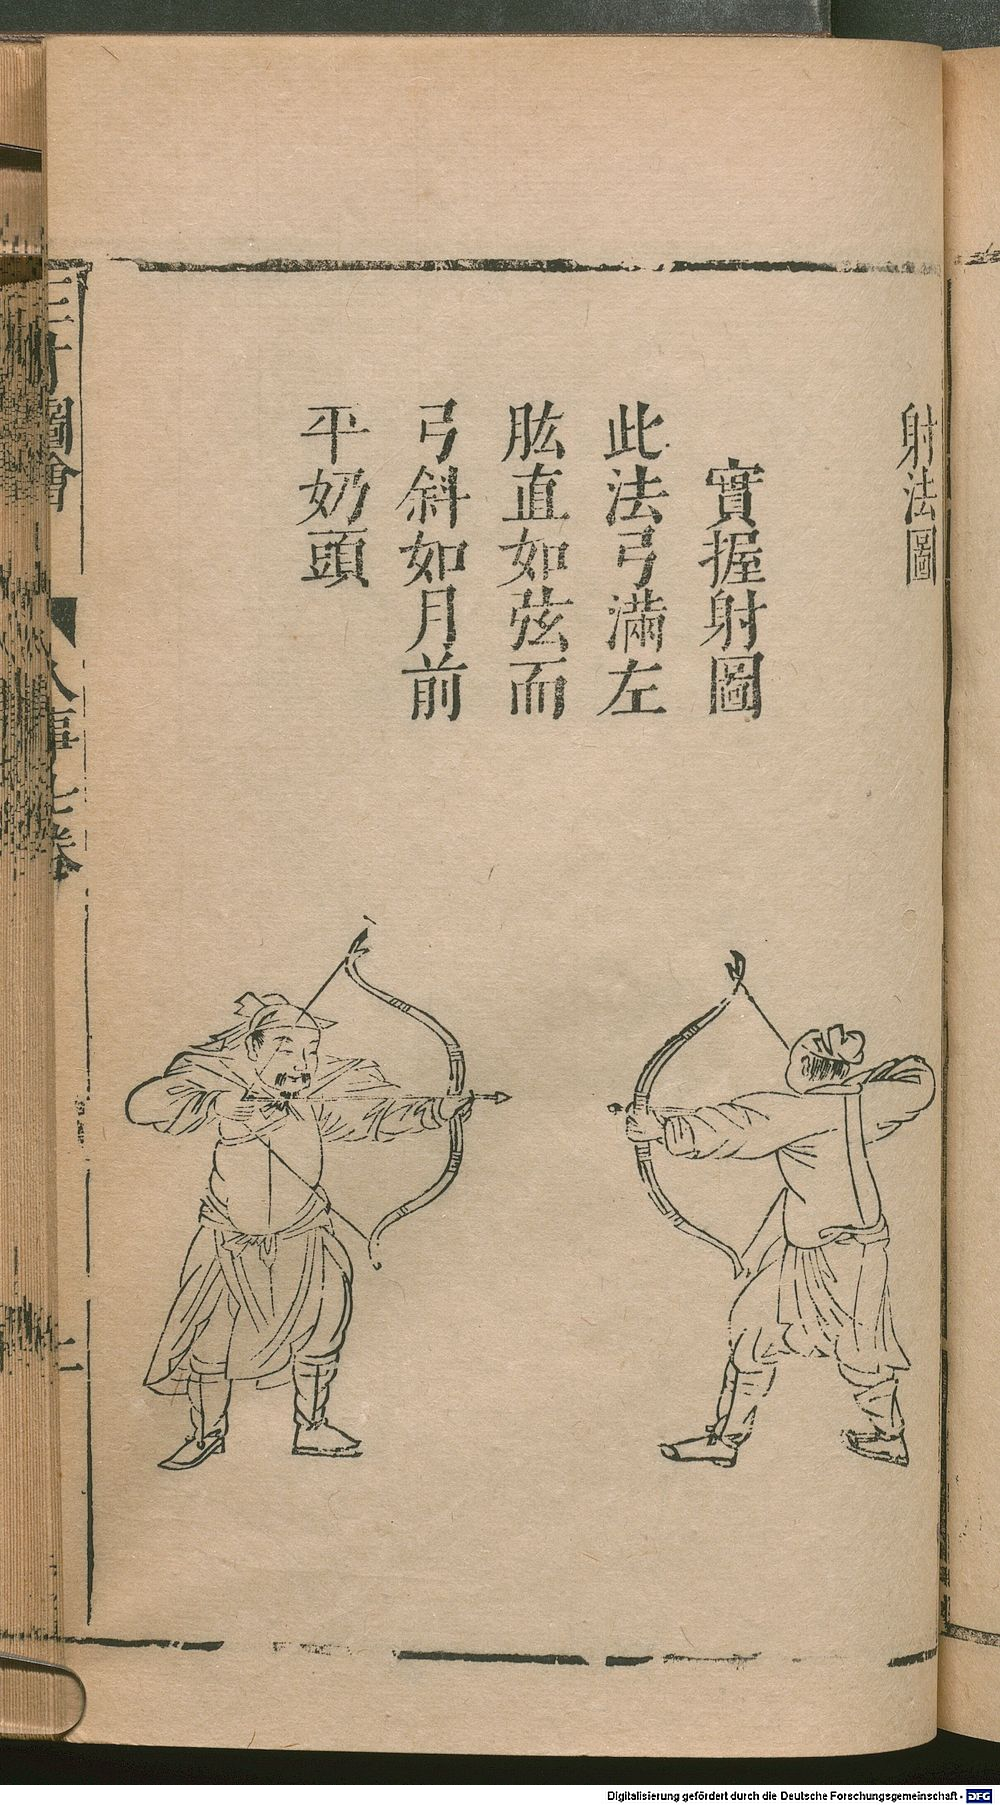 射法圖
實握射圖
此法弓滿左
肱直如弦而
弓斜如月前
平奶頭
三才圖會
人事七卷
二
Digitalisierung gefördert durch die Deutsche Forschungsgemeinschaft - DFG